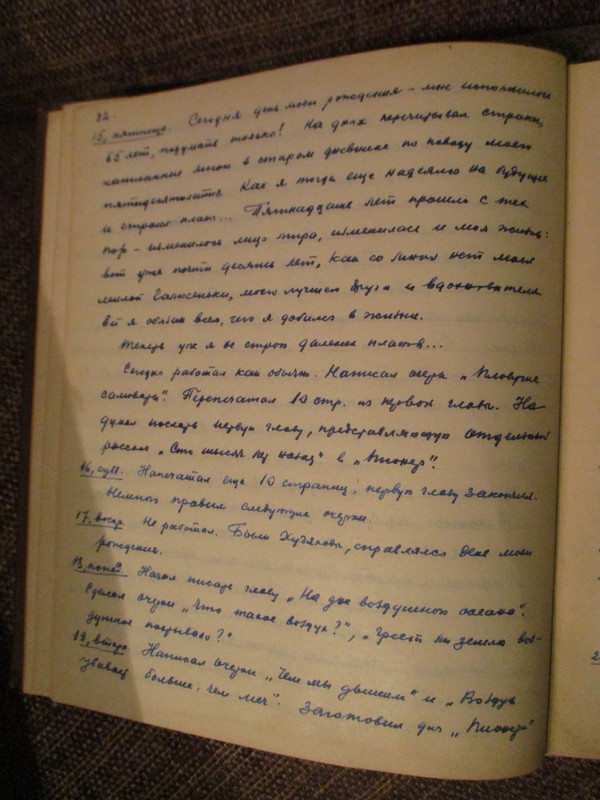 82.
15, пятница. Сегодня день моего рождения - мне исполнилось
65 лет, подумать только! На днях перечитывал страницы,
написанные мною в старом дневнике по поводу моего
пятидесятилетия. Как я тогда еще надеялся на будущее
и строил планы... Пятнадцать лет прошло с тех
пор - изменилось лицо мира, изменилась и моя жизнь:
вот уже почти десять лет, как со мною нет моей
милой Галюсеньки, моего лучшего друга и вдохновителя.
Ей я обязан всем, чего я добился в жизни.
Теперь уж я не строю далеких планов...
Сегодня работал как обычно. Написал очерк „Пловучие
самовары". Перепечатал 10 стр. из первой главы. На-
думал послать первую главу, представляющую отдельный
рассказ „Сто тысяч лет назад" в „Пионер".
16, субб. Напечатал еще 10 страниц; первую главу закончил.
Немного правил следующие очерки.
17, воскр. Не работал. Были Худяковы, справлялся день моего
рождения.
18, понед. Начал писать главу „На дне воздушного океана".
Сделал очерки „Что такое воздух?", „Греет ли землю воз-
душное покрывало?"
19, вторн. Написал очерки „Чем мы дышим" и „Воздух
убивает больше, чем меч". Заготовил для „Пионера"